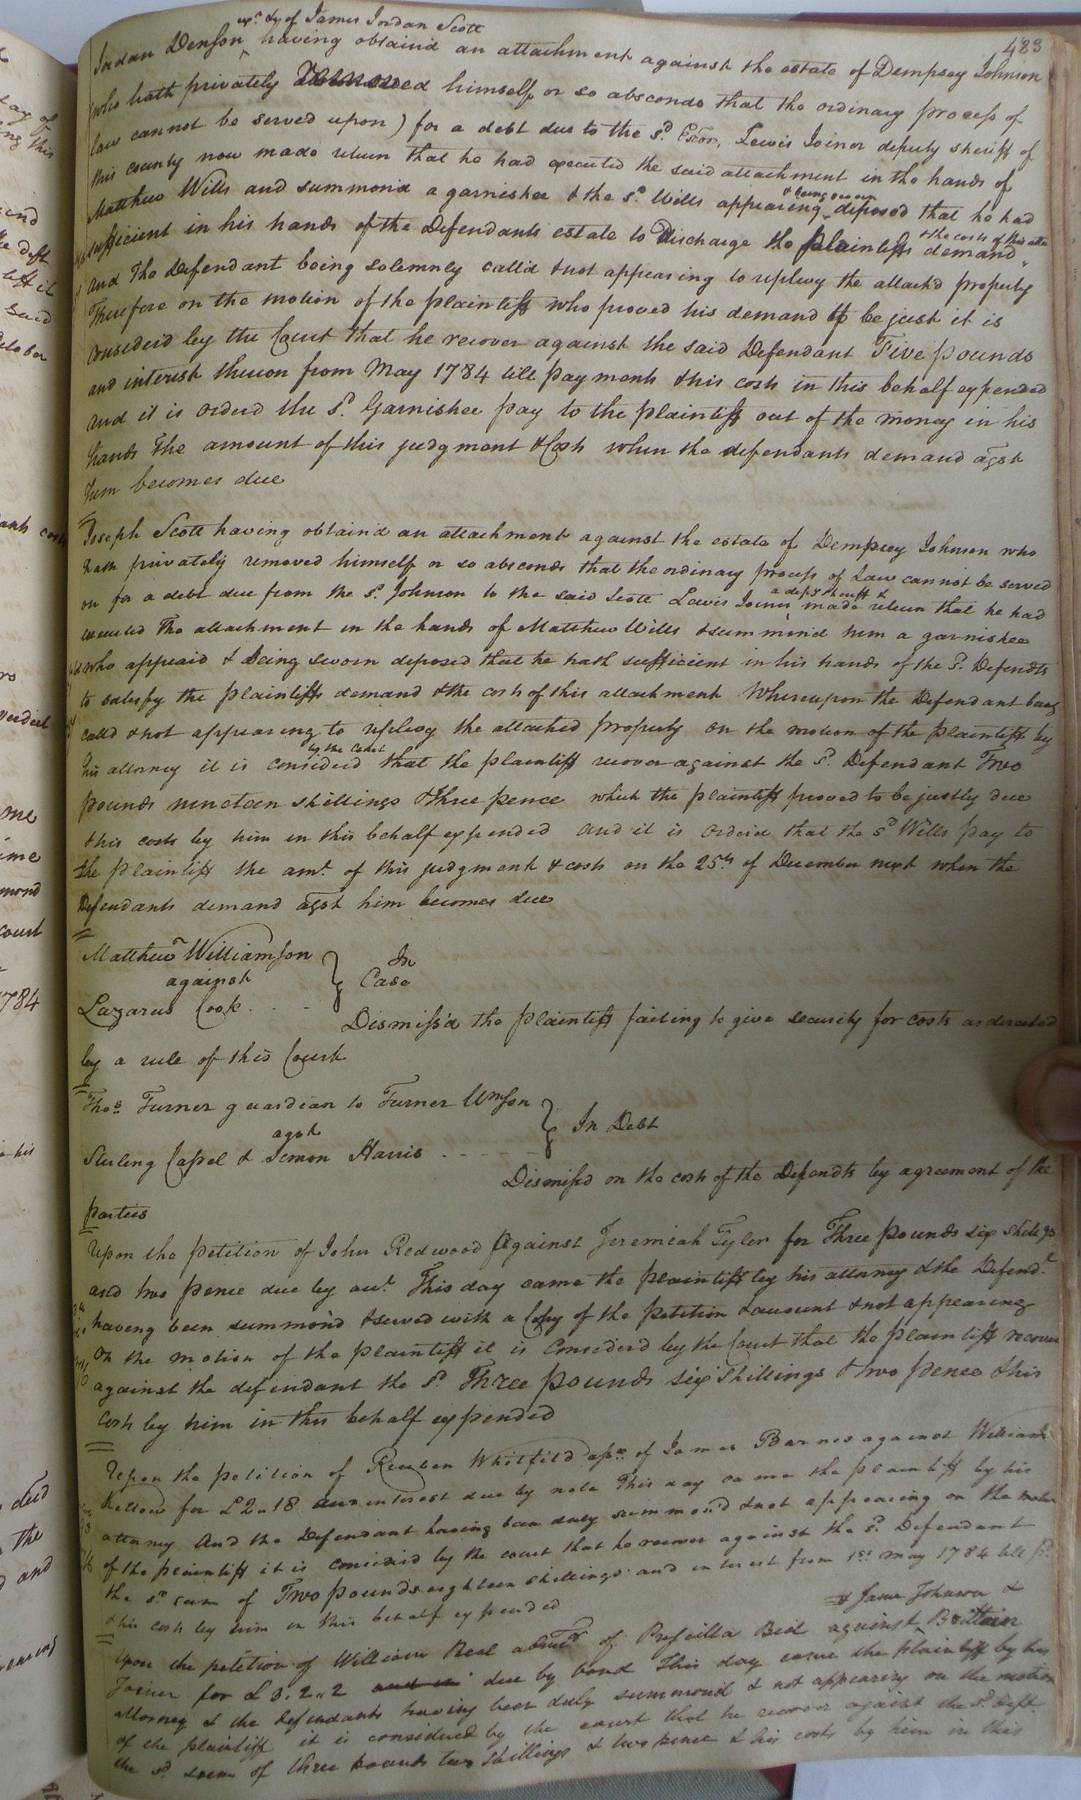 483
exr. &c of James Jordan Scott
Jordan Denson having obtaind an attachment against the estate of Dempsey Johnson
(who hath privately removed himself or so absconds that the ordinary process of
law cannot be served upon) for a debt due to the sd. Estor, Lewis Joiner deputy sheriff of
this county now made return that he had executed the said attachment in the hands of
Matthew Wills and summon'd a garnishee & the sd. Wills appearing & being sworn deposed that he had
sufficient in his hands of the Defendants estate to discharge the plaintiffs demand & the costs of this atta
And the defendant being solemnly calld & not appearing to replevy the attach'd property
Therefore on the motion of the plaintiff who proved his demand to be just it is
considerd by the Court that he recover against the said Defendant Five pounds
and interest thereon from May 1784 till payment & his costs in this behalf expended
And it is orderd the sd. Garnishee pay to the plaintiff out of the money in his
hands the amount of this judgment & Costs when the defendants demand agst
him becomes due
Joseph Scott having obtaind an attachment against the estate of Dempsey Johnson who
hath privately removed himself or so absconds that the ordinary process of Law cannot be served
on for a debt due from the sd. Johnson to the said Scott Lewis Joiner a depy. Sheriff &c made return that he had
executed the attachment in the hands of Matthew Wills & summond him a garnishee
who appeard & being sworn deposed that he hath sufficient in his hands of the sd. Defendts
to satisfy the plaintiffs demand & the costs of this attachment Whereupon the Defendant being
calld & not appearing to replevy the attached property on the motion of the plaintiff by
his attorney it is considerd by the Court that the plaintiff recover against the sd. Defendant Two
pounds nineteen shillings & three pence which the plaintiff proved to be justly due
& his costs by him in this behalf expended and it is orderd that the sd Wills pay to
the plaintiff the amt. of this judgment & costs on the 25th of December next when the
Defendants demand agst him becomes due
Matthew Williamson
against
Lazarus Cook
In
Case
Dismiss'd the plaintiff failing to give security for costs as directed
by a rule of this Court
Thos Turner guardian to Turner Wmson
agst
Sterling Capel & Semon Harris
In Debt
Dismiss'd on the costs of the Defendts by agreement of the
parties
Upon the petition of John Redwood against Jeremiah Tyler for Three pounds six shillgs
and two pence due by acct. This day came the plaintiff by his attorney & the Defendt
having been summond & served with a Copy of the petition & account & not appearing
On the motion of the plaintiff it is Considerd by the Court that the plaintiff recover
against the defendant the sd. Three pounds six shillings & two pence & his
costs by him in this behalf expended
Upon the petition of Reuben Whitfield assee. of James Barnes against William
Kellow for £2 " 18 and interest due by note This day came the plaintiff by his
attorney And the Defendant having been duly summond & not appearing on the motion
of the plaintiff it is considerd by the court that he recover against the sd. Defendant
the sd. sum of Two pounds eighteen shillings and interest from 1st May 1784 till pd.
& his costs by him in this behalf expended
& Jesse Johnson &
Upon the petition of William Beal admr. of Priscilla Beal against Brittain
Joiner for £3.2..2 due by bond This day came the plaintiff by his
attorney & the defendants having been duly summond & not appearing on the motion
of the plaintiff it is considered by the court that he recover against the sd. Deft.
the sd. sum of three pounds two shillings & two pence & his costs by him in this